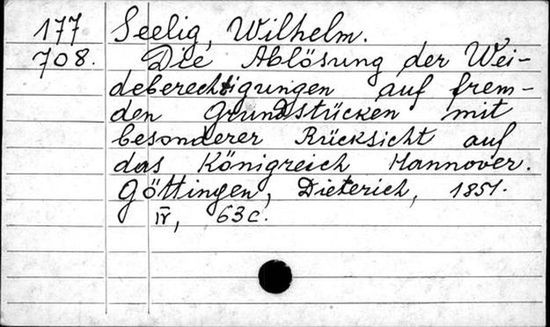 177 Seelig, Wilhelm.
708. Die Ablösung der Wei-
deberechtigungen auf frem-
den Grundstücken mit
besonderer Rücksicht auf
das Königreich Hannover.
Göttingen, Dieterich, 1851.
IV, 63 c.